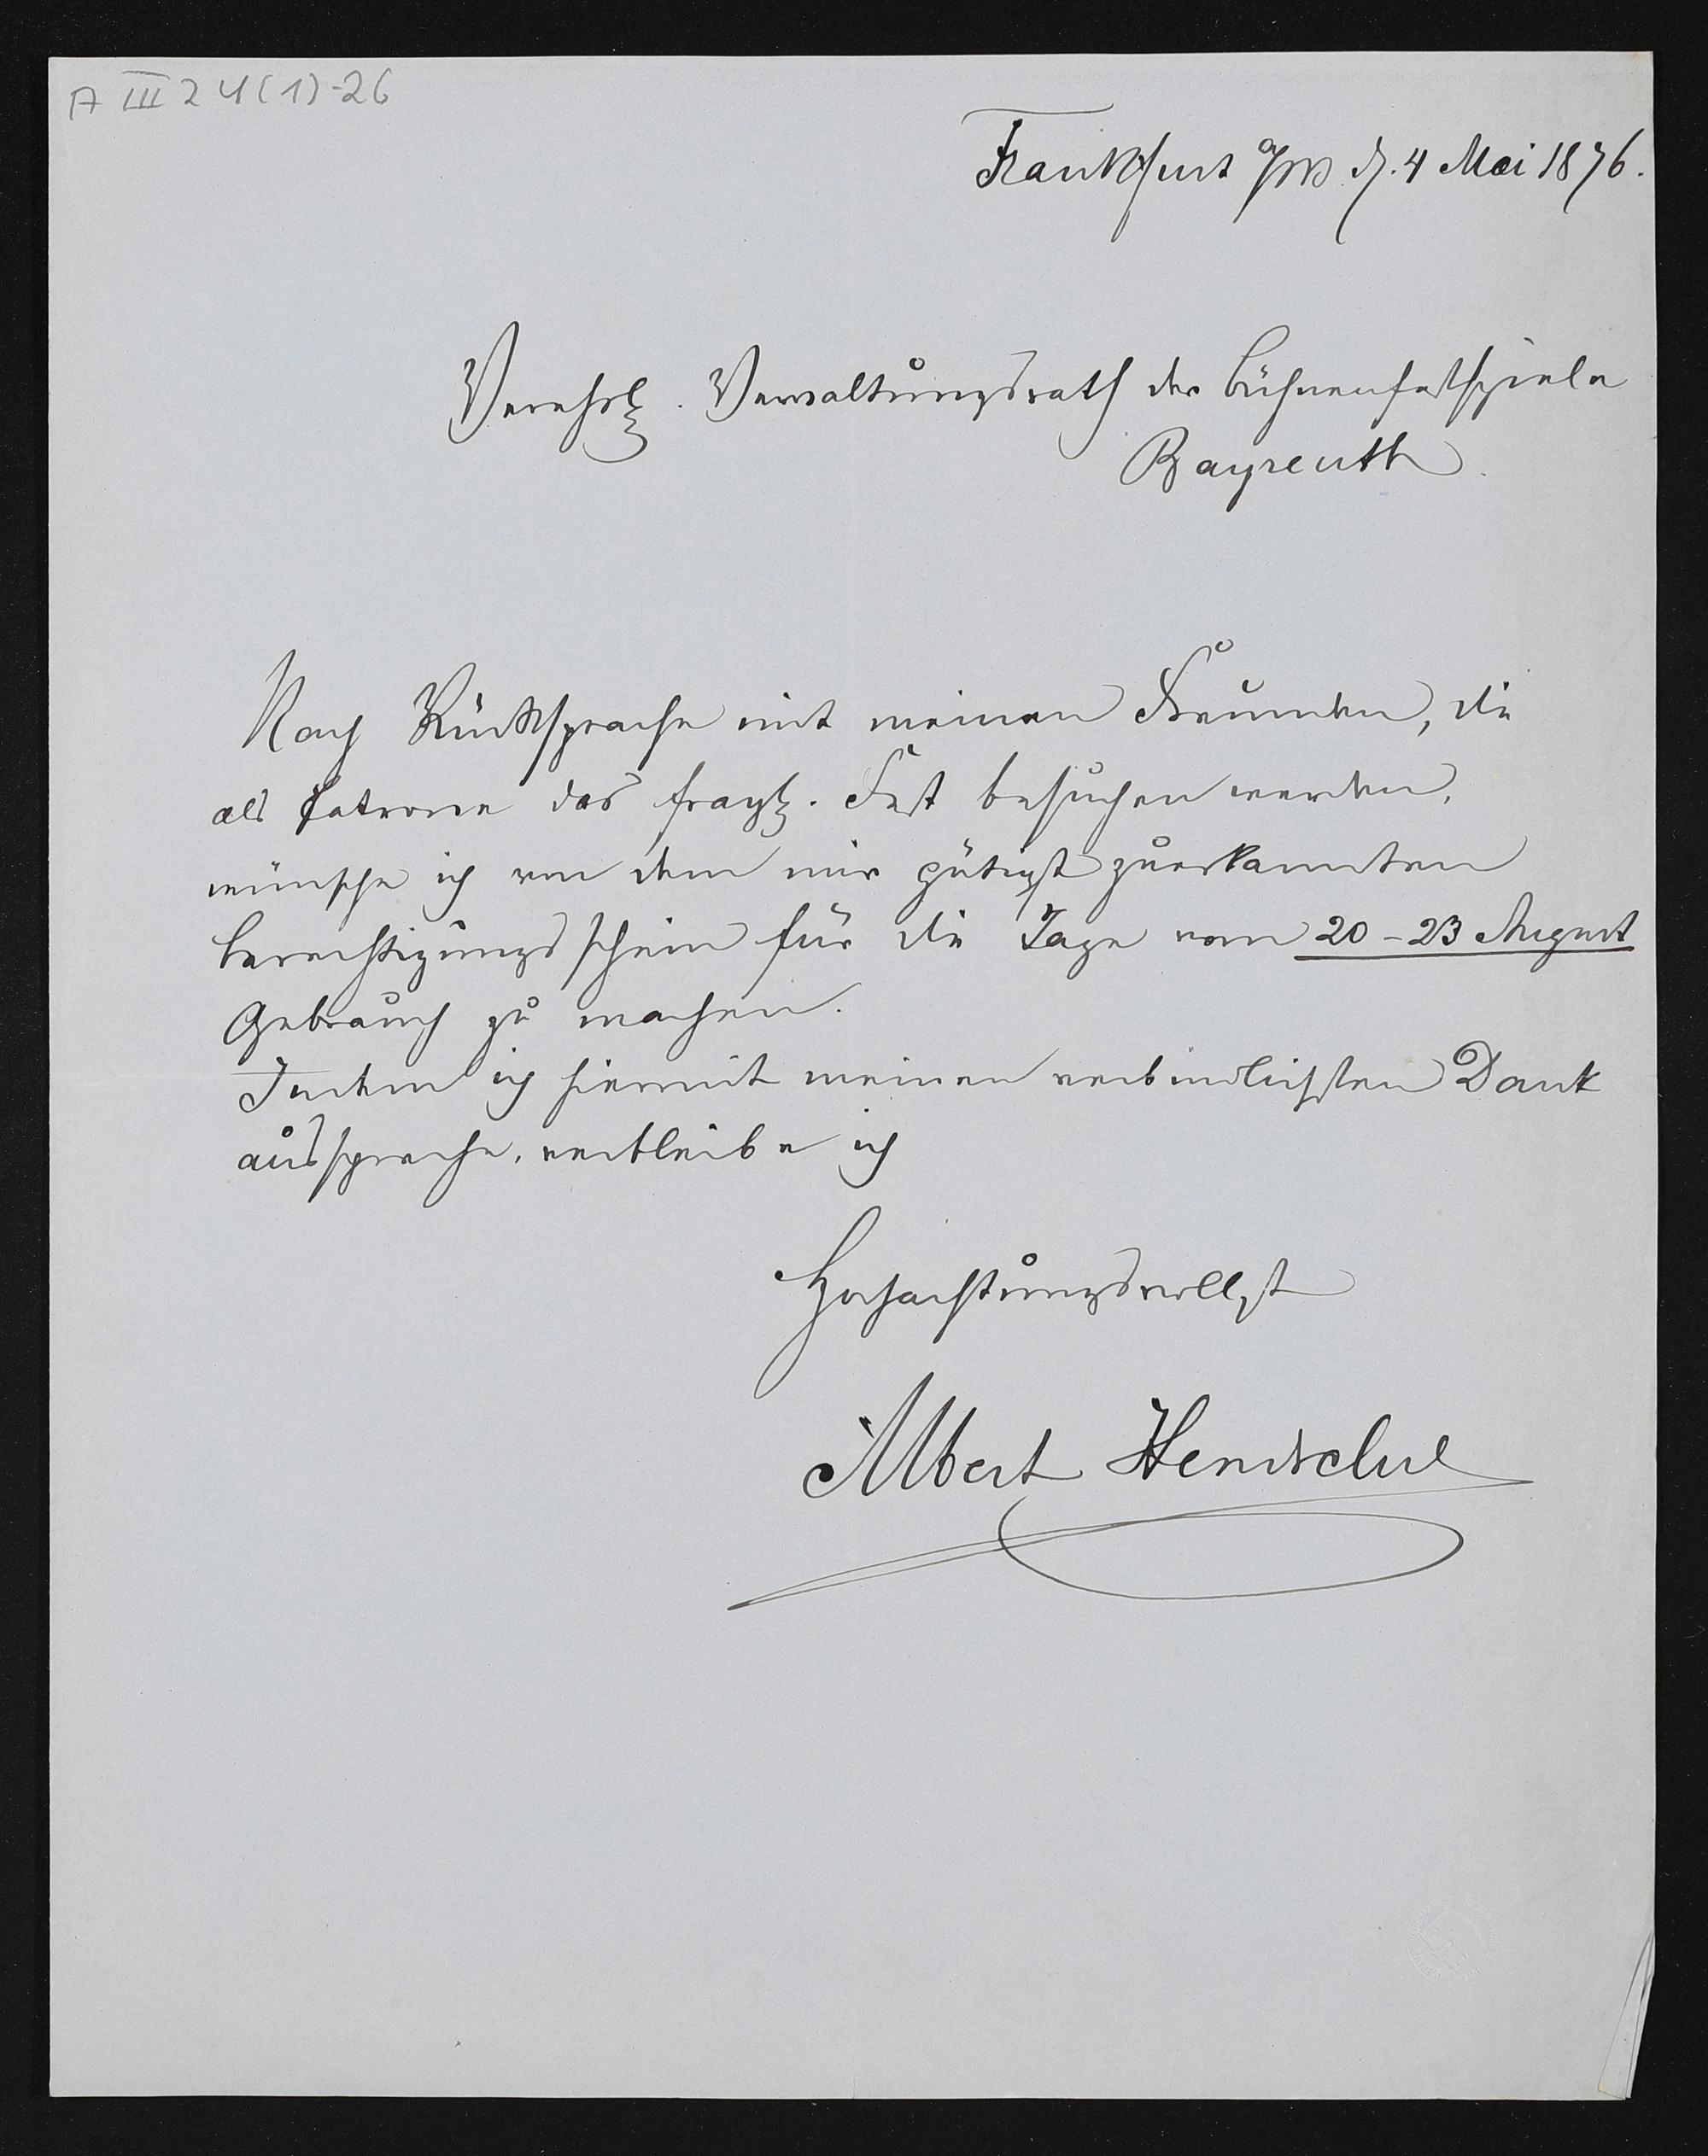 A III 24(1)-26
Frankfurt a/M d. 4 Mai 1876.
Verehrl. Verwaltungsrath der Bühnenfestspiele
Bayreuth.
Nach Rücksprache mit meinen Freunden, die
als Patrone das fragl. Fest besuchen werden,
wünsche ich von dem mir gütigst zuerkannten
Berechtigungsschein für die Tage vom 20-23 August
Gebrauch zu machen.
Indem ich hiermit meinen verbindlichsten Dank
ausspreche, verbleibe ich
Hochachtungsvollst
Albert Hendschel